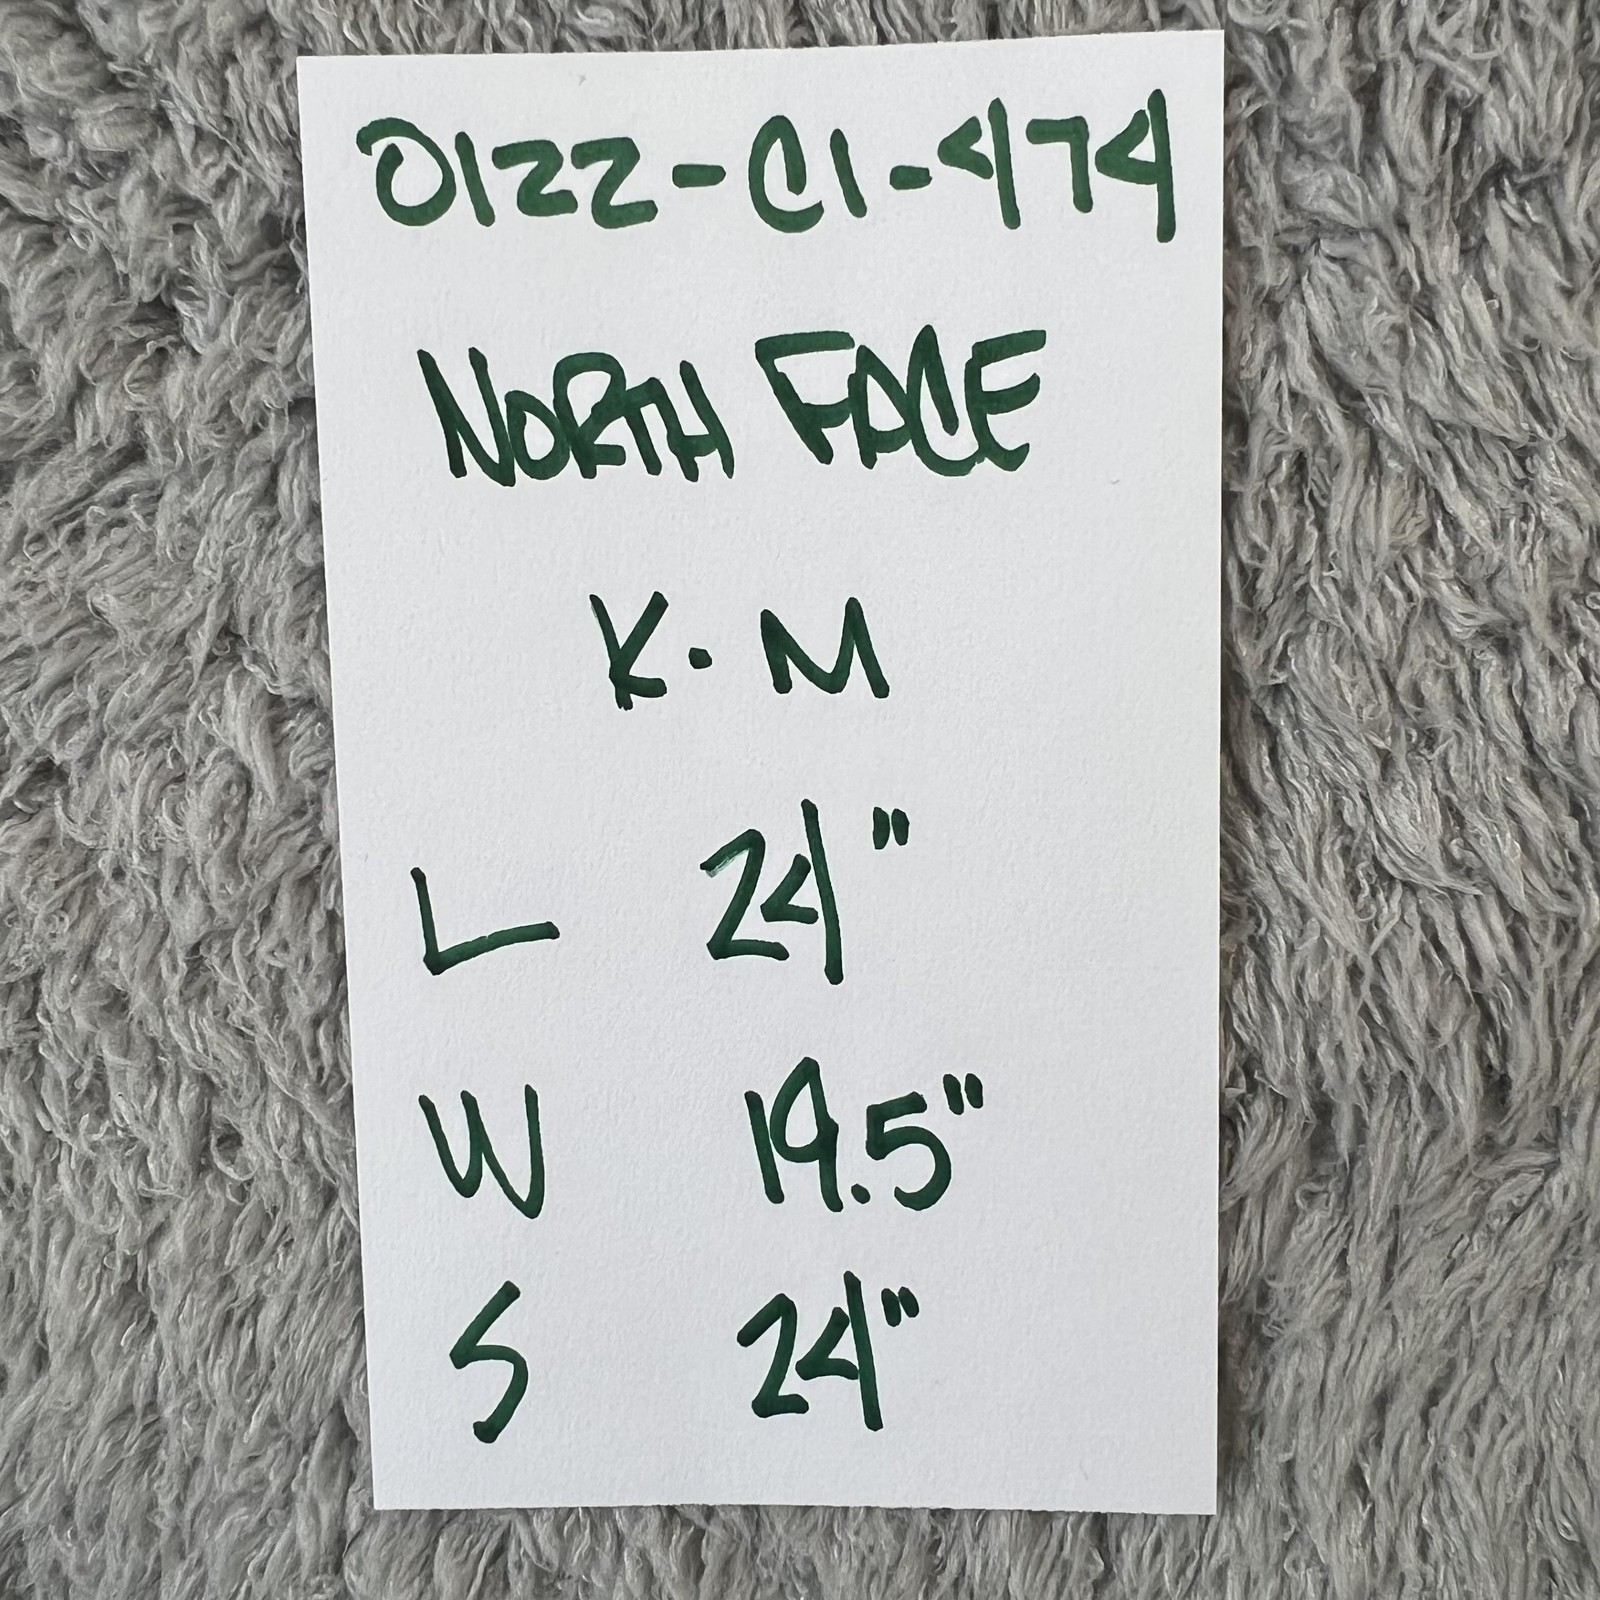 0122-C1-474
NORTH FACE
K. M
L 24"
W 19.5"
S 24"